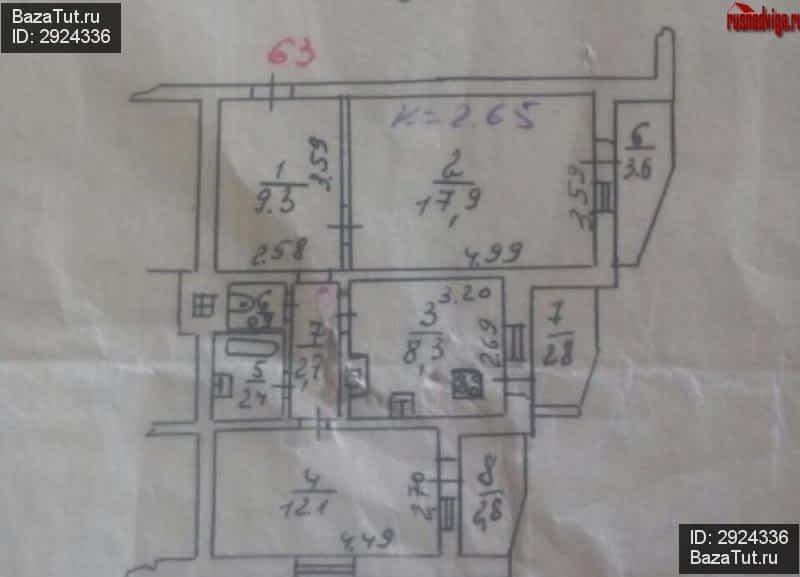 BazaTut.ru
ID: 2924336
rusnedviga.ru
63
к=2.65
1
9.3
3.59
2.58
2
17,9
3.59
4.99
6
3.6
3
8,3
3.20
2.69
7
2.8
6
7
2,7
5
2.4
4
12.1
2,70
4.49
8
2,8
ID: 2924336
BazaTut.ru